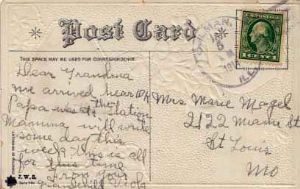 Post Card
THIS SPACE MAY BE USED FOR CORRESPONDENCE.
Dear Grandma
we arrived here O.K.
Papa was at the station
Mamma will write
some day this
week. This is all
for this time
From your
Mrs. Marie Mazel
2122 Miami St
St Louis
Mo
J.W.B.